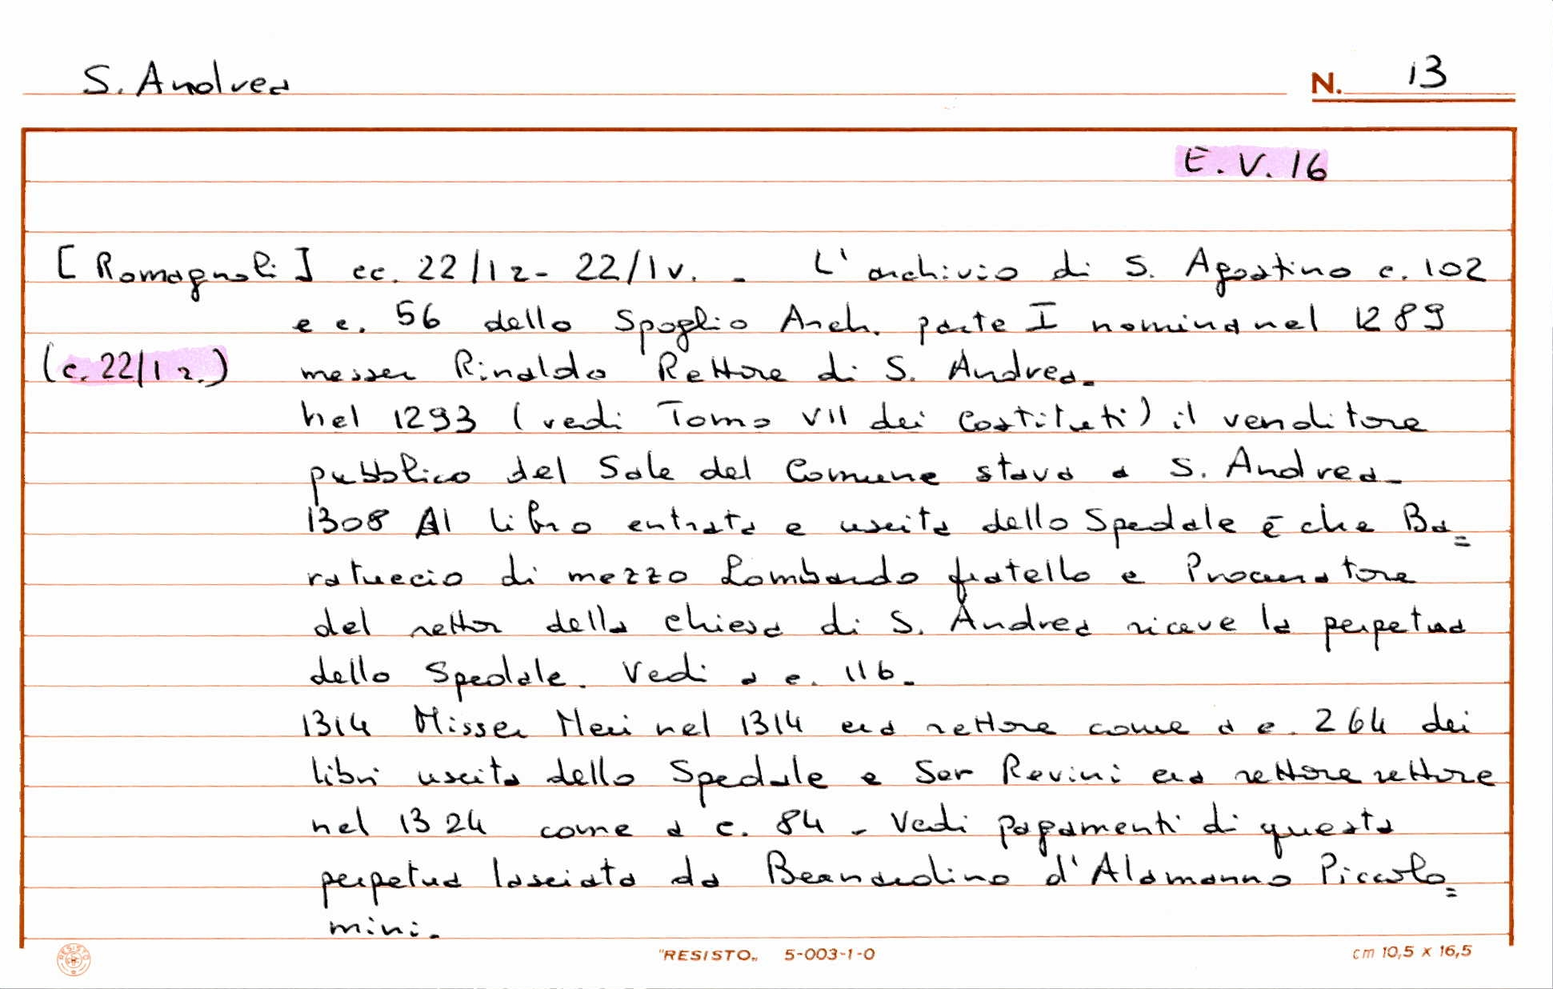 S. Andrea
N. 13
E. V. 16
[Romagnoli] cc. 22/1 r - 22/1 v. - L'archivio di S. Agostino c. 102
e c. 56 dello Spoglio Arch. parte I nomina nel 1289
(c. 22/1 r.) messer Rinaldo Rettore di S. Andrea.
nel 1293 (vedi Tomo VII dei Costituti) il venditore
pubblico del Sale del Comune stava a S. Andrea.
1308 Al libro entrata e uscita dello Spedale è che Ba=
ratuccio di mezzo Lombardo fratello e Procuratore
del rettor della chiesa di S. Andrea riceve la perpetua
dello Spedale. Vedi a c. 116.
1314 Misser Meri nel 1314 era rettore come a c. 264 dei
libri uscita dello Spedale e Ser Revini era rettore rettore
nel 1324 come a c. 84 - Vedi pagamenti di questa
perpetua lasciata da Bernardino d'Alamanno Piccolo=
mini.
RESISTO
"RESISTO„ 5-003-1-0
cm 10,5 x 16,5